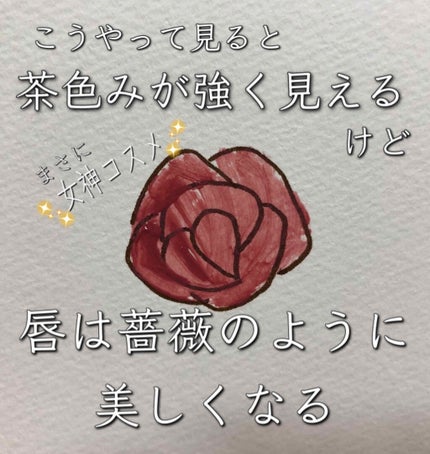 こうやって見ると
茶色みが強く見える
けど
まさに
女神コスメ
唇は薔薇のように
美しくなる